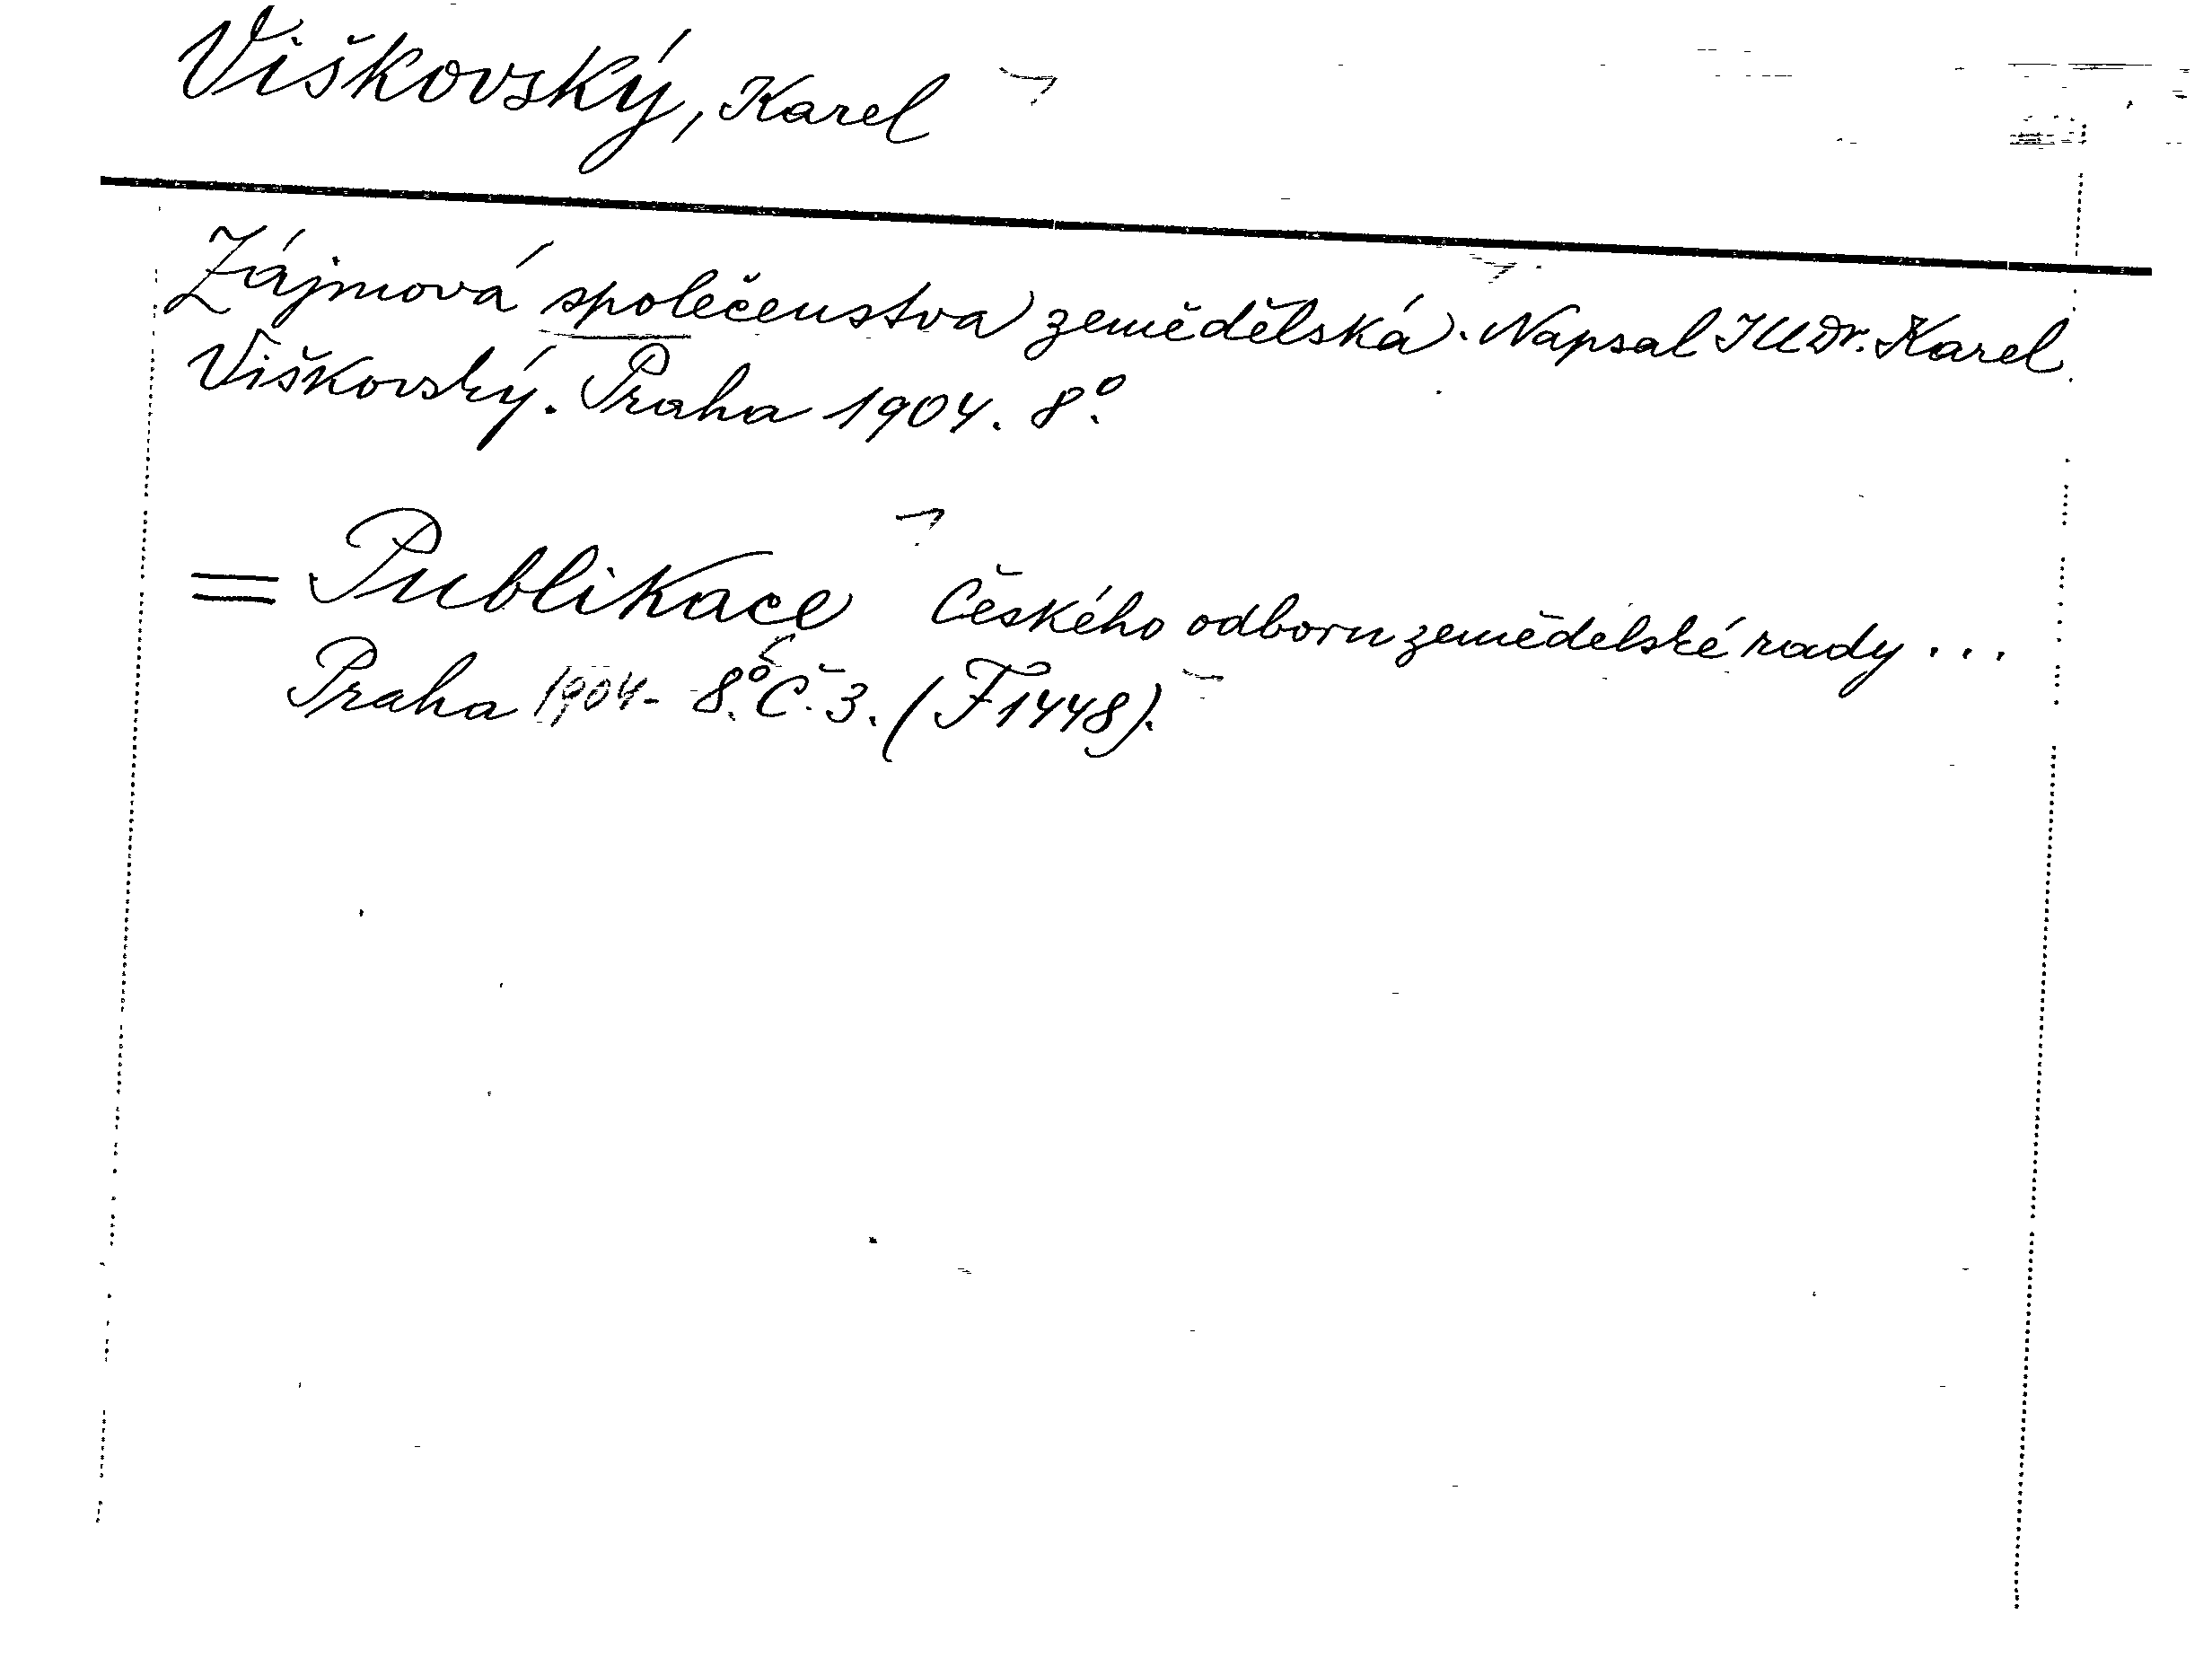 Viškovský, Karel
Zájmová společenstva zemědělská. Napsal JUDr. Karel
Viškovský. Praha 1904. 8º.
= Publikace Českého odboru zemědělské rady ...
Praha 1904- 8º. Č. 3. (F1448).